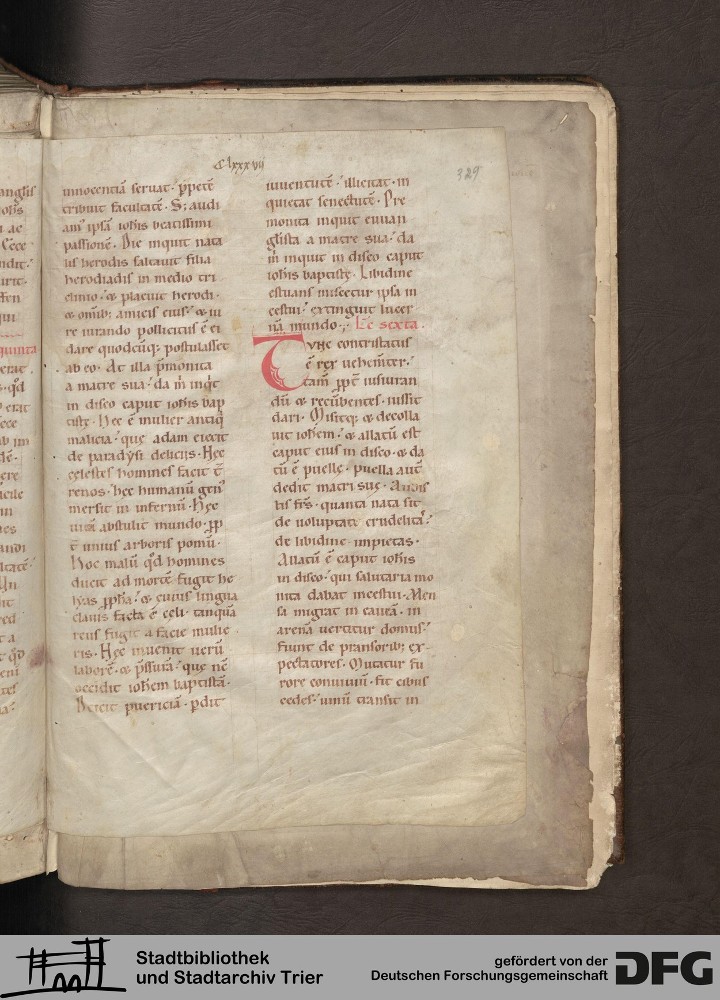 Clxxxvii
329
innocentiā seruat · p̄petē
tribuit facultatē · S; audi
am᷒ ipsā ioh̄is beatissimi
passionē · Die inquit nata
lis herodis saltauit filia
herodiadis in medio tri
clinio · & placuit herodi ·
& omīb; amicis eius · & iu
re iurando pollicitus ē ei
dare quodcūq; postulasset
ab eo · At illa p̄monita
a matre sua · da m̄ inq̄t
in disco caput ioh̄is bap
tistę · Hec ē mulier antiq̄
malicia · quę adam eiecit
de paradẏsi deliciis · Hęc
cęlestes homines facit t̄
renos · hęc humanū gen᷒
mersit in infernū · Hęc
uitā abstulit mundo · p̄p
t̄ unius arboris pomū ·
Hoc malū q̄d homines
ducit ad mortē · fugit he
lẏas p̄pħa · & cuius lingua
clauis facta ē cęli · tanquā
reus fugit a facie mulie
ris · Hęc inuenit uerū
laborē · & p̄ssurā · quę nē
occidit ioh̄em baptistā ·
Deicit puericiā · p̱dit
iuuentutē · illicitat · in
quietat senectutē · Pre
monita inquit euuan
glista a matre sua · da
m̄ inquit in disco caput
ioh̄is baptistę · Libidine
estuans miscetur ipsa in
cestui · extinguit lucer
nā mundo · Lc̄ sexta ·
Tunc contristatus
ē rex uehem̄ter ·
tam̄ p̄pt̄ iusiuran
dū & recūbentes · iussit
dari · Misitq; & decolla
uit ioh̄em · & allatū est
caput eius in disco · & da
tū ē puellę · puella aut̄
dedit matri suę · Audis
tis fr̄s · quanta nata sit
de uoluptate crudelitas ·
de libidine impietas ·
Allatū ē caput ioh̄is
in disco · qui salutaria mo
nita dabat incestui · Men
sa migrat in caueā · in
arenā uertitur domus ·
fiunt de pransorib; ex
pectatores · Mutatur fu
rore conuiuiū · fit cibus
cedes · uinū transit in
Stadtbibliothek
und Stadtarchiv Trier
gefördert von der
Deutschen Forschungsgemeinschaft
DFG